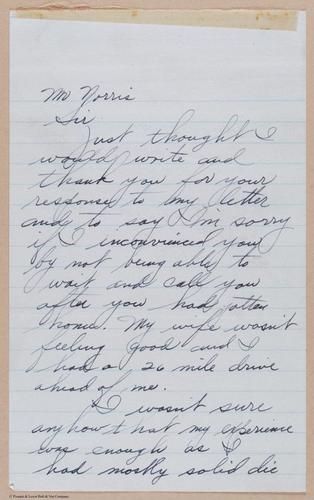 Mr Norris
Sir
Just thought I
would write and
thank you for your
ressonse to my letter
and to say I'm sorry
if I inconvinced you
by not being able to
wait and call you
after you had gotten
home. My wife wasn't
feeling good and I
had a 26 mile drive
ahead of me.
I wasn't sure
anyhow that my experience
was enough as I
had mostly solid die